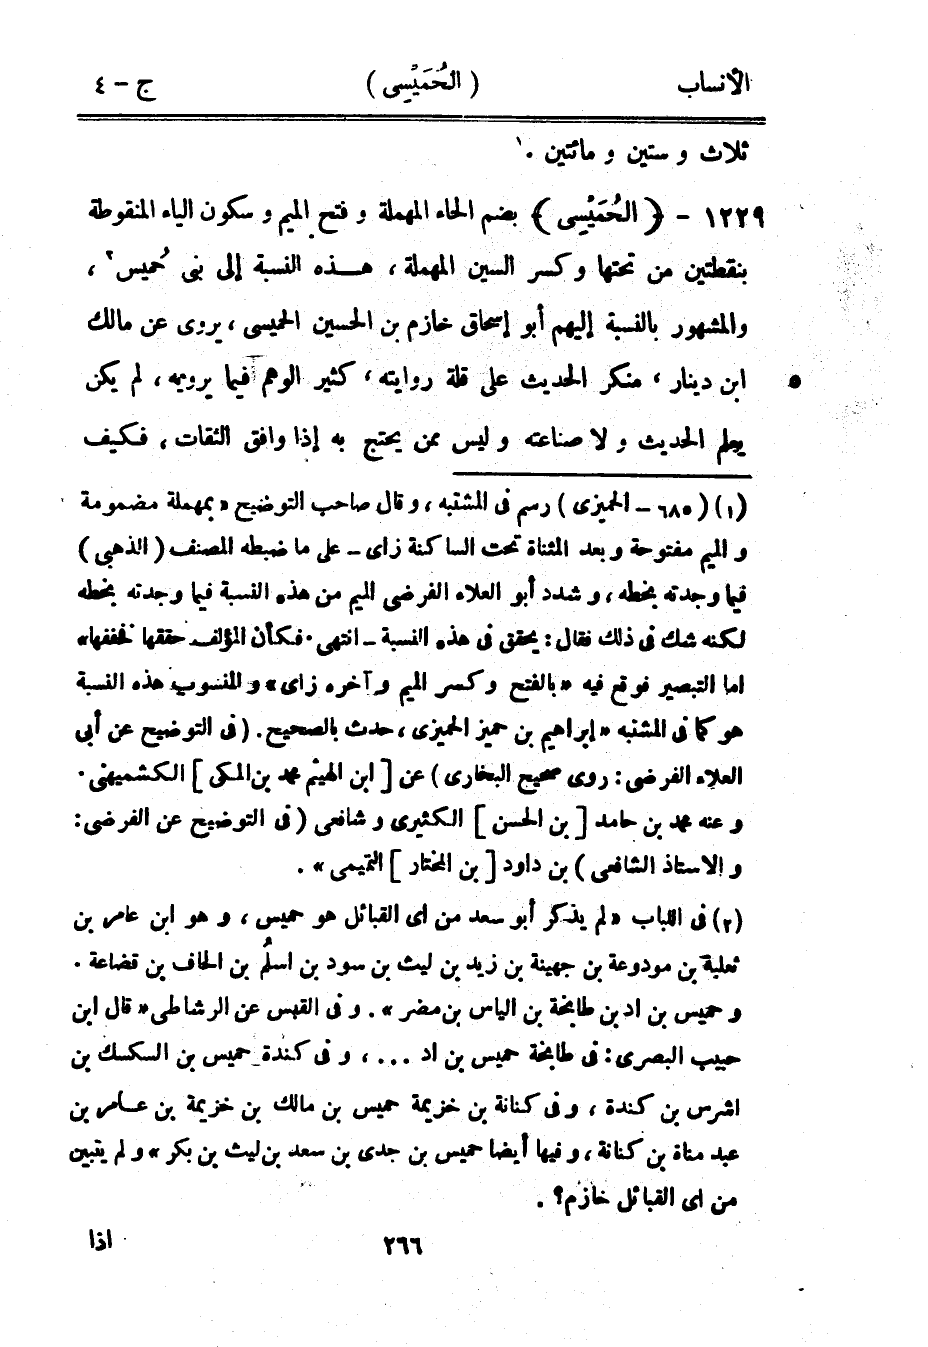 الأنساب ( الحُمَيْسى ) ج - ٤
ثلاث و ستين و مائتين .¹
١٢٢٩ - ﴿ الحُمَيْسى ﴾ بضم الحاء المهملة و فتح الميم و سكون الياء المنقوطة
بنقطتين من تحتها و كسر السين المهملة ، هذه النسبة إلى بنى حُميس² ،
والمشهور بالنسبة إليهم أبو إسحاق خازم بن الحسين الحميسى ، يروى عن مالك
ابن دينار ، منكر الحديث على قلة روايته ، كثير الوهم فيما يرويه ، لم يكن
يعلم الحديث و لا صناعته و ليس ممن يحتج به إذا وافق الثقات ، فكيف
(١) ( ٦٨٥ – الحميزى ) رسم فى المشتبه ، و قال صاحب التوضيح « بمهملة مضمومة
و الميم مفتوحة و بعد المثناة تحت الساكنة زاى – على ما ضبطه المصنف ( الذهبى )
فيما وجدته بخطه ، و شدد أبو العلاء الفرضى الميم من هذه النسبة فيما وجدته بخطه
لكنه شك فى ذلك فقال : يحقق فى هذه النسبة – انتهى . فكأن المؤلف حققها فخففها »
اما التبصير فوقع فيه « بالفتح و كسر الميم و آخره زاى » و المنسوب هذه النسبة
هو كما فى المشتبه « إبراهيم بن حميز الحميزى ، حدث بالصحيح . ( فى التوضيح عن أبى
العلاء الفرضى : روى صحيح البخارى ) عن [ ابن الهيثم محمد بن المكى ] الكشميهنى .
و عنه محمد بن حامد [ بن الحسن ] الكثيرى و شافعى ( فى التوضيح عن الفرضى :
و الاستاذ الشافعى ) بن داود [ بن المختار ] التميمى » .
(٢) فى اللباب « لم يذكر أبو سعد من اى القبائل هو حميس ، و هو ابن عامر بن
ثعلبة بن مودوعة بن جهينة بن زيد بن ليث بن سود بن اسلُم بن الحاف بن قضاعة .
و حميس بن اد بن طابخة بن الياس بن مضر » . و فى القبس عن الرشاطى « قال ابن
حبيب البصرى : فى طابخة حميس بن اد ... ، و فى كندة حميس بن السكسك بن
اشرس بن كندة ، و فى كنانة بن خزيمة حميس بن مالك بن خزيمة بن عامر بن
عبد مناة بن كنانة ، و فيها أيضا حميس بن جدى بن سعد بن ليث بن بكر » و لم يتبين
من اى القبائل خازم ؟ .
٢٦٦ اذا